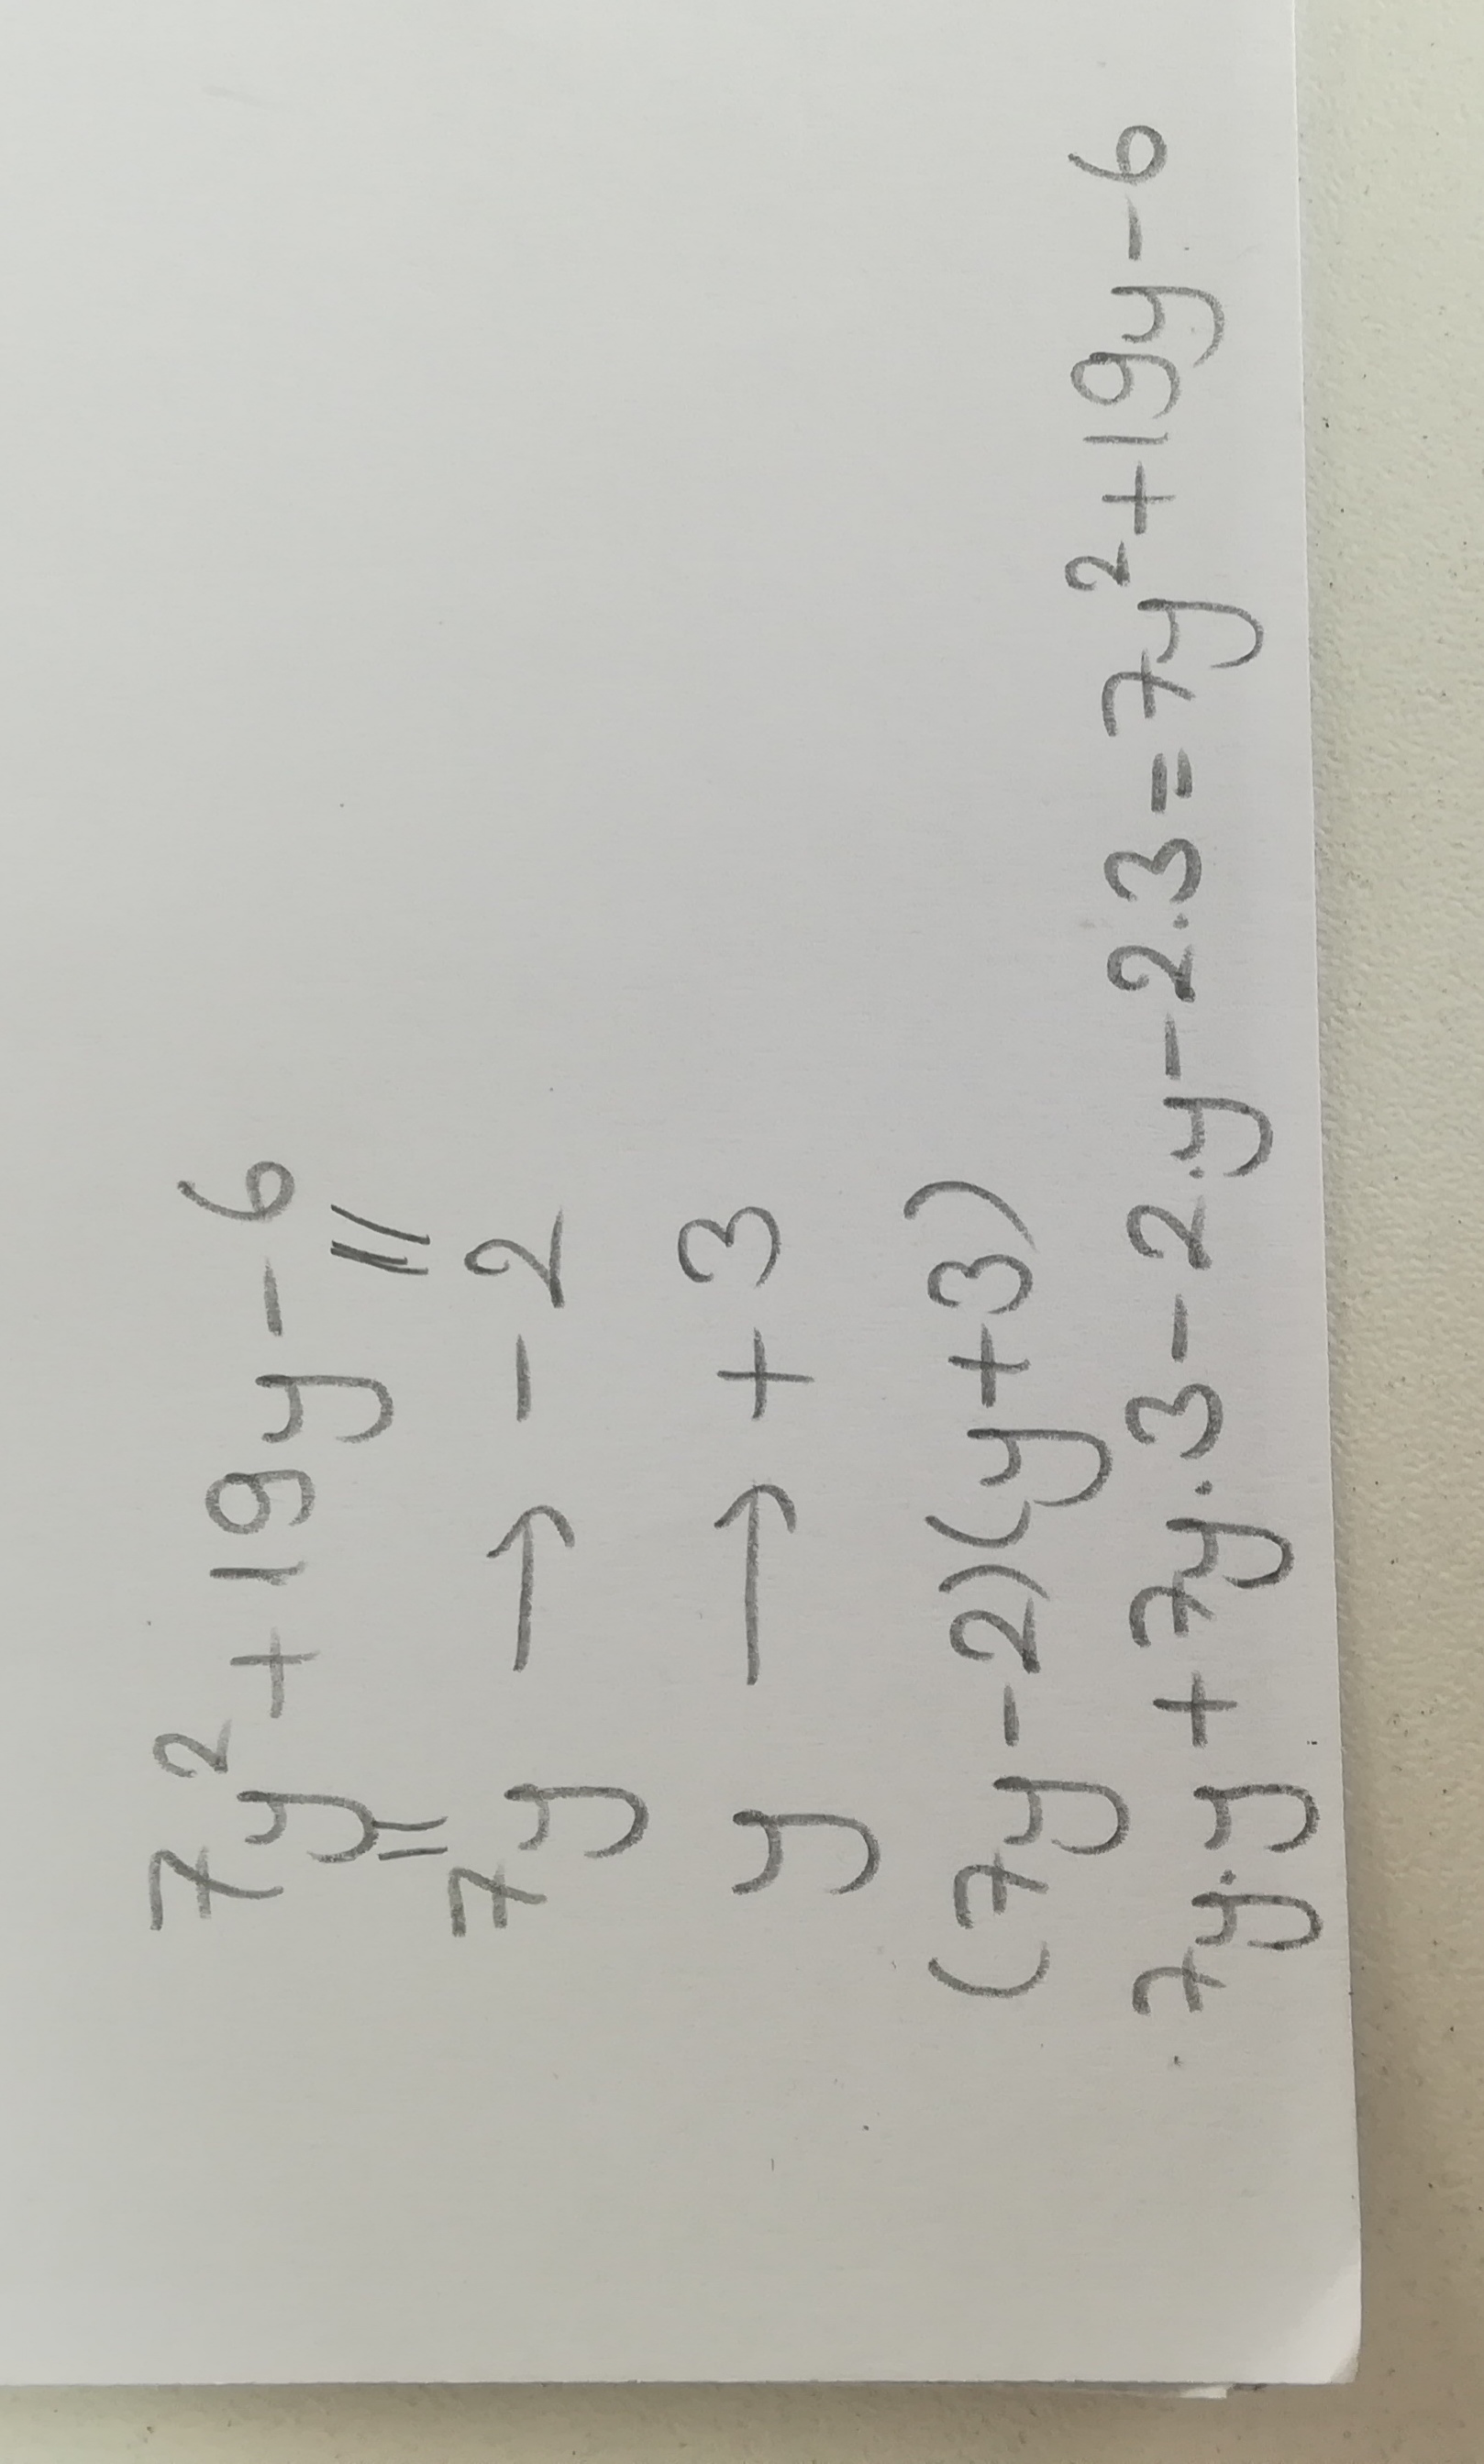 7y²+19y-6
7y → -2
y → +3
(7y-2)(y+3)
7y.y+7y.3-2.y-2.3=7y²+19y-6